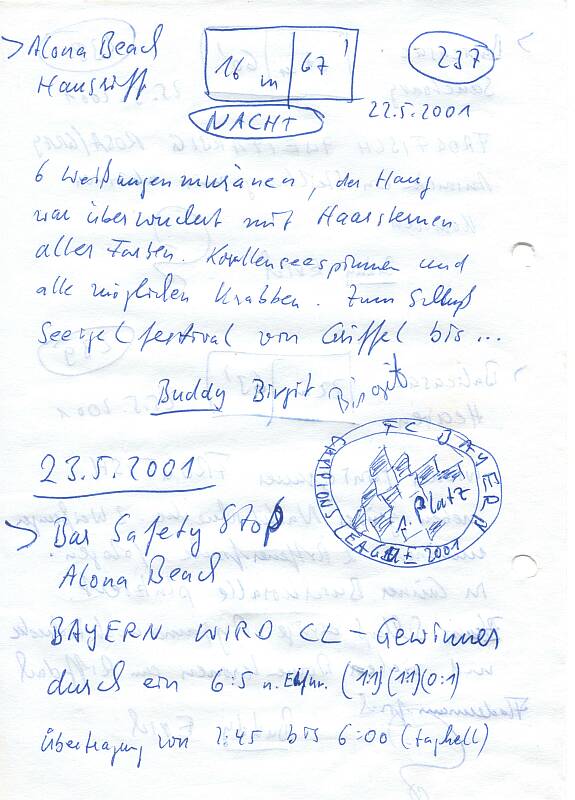 > Alona Beach
Hausriff
16 m | 67'
237
NACHT
22.5.2001
6 Weißaugenmuränen, der Hang
war überwuchert mit Haarsternen
aller Farben. Korallenseespinnen und
alle möglichen Krabben. Zum Schluß
Seeigelfestival von Griffel bis ...
Buddy Birgit Birgit
TC BAYERN
1. Platz
CHAMPIONS LEAGUE 2001
23.5.2001
> Bar Safety Stop
Alona Beach
BAYERN WIRD CL-Gewinner
durch ein 6:5 n. Elfm. (1:1)(1:1)(0:1)
Übertragung von 2:45 bis 6:00 (taghell)